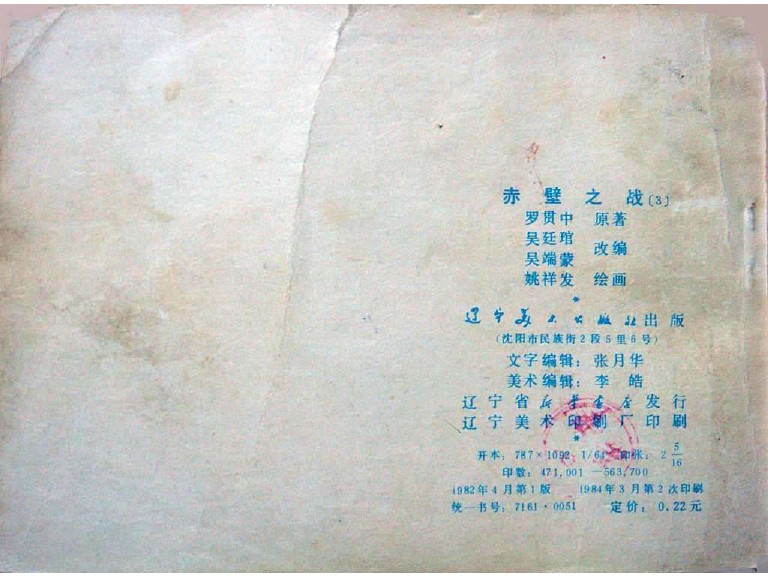 赤壁之战〔3〕
罗贯中 原著
吴廷琯
吴端蒙 改编
姚祥发 绘画
*
辽宁美术出版社出版
(沈阳市民族街2段5里6号)
文字编辑：张月华
美术编辑：李 皓
辽宁省新华书店发行
辽宁美术印刷厂印刷
*
开本：787×1092 1/64 印张：2 5/16
印数：471,001—563,700
1982年4月第1版 1984年3月第2次印刷
统一书号：7161·0051 定价：0.22元